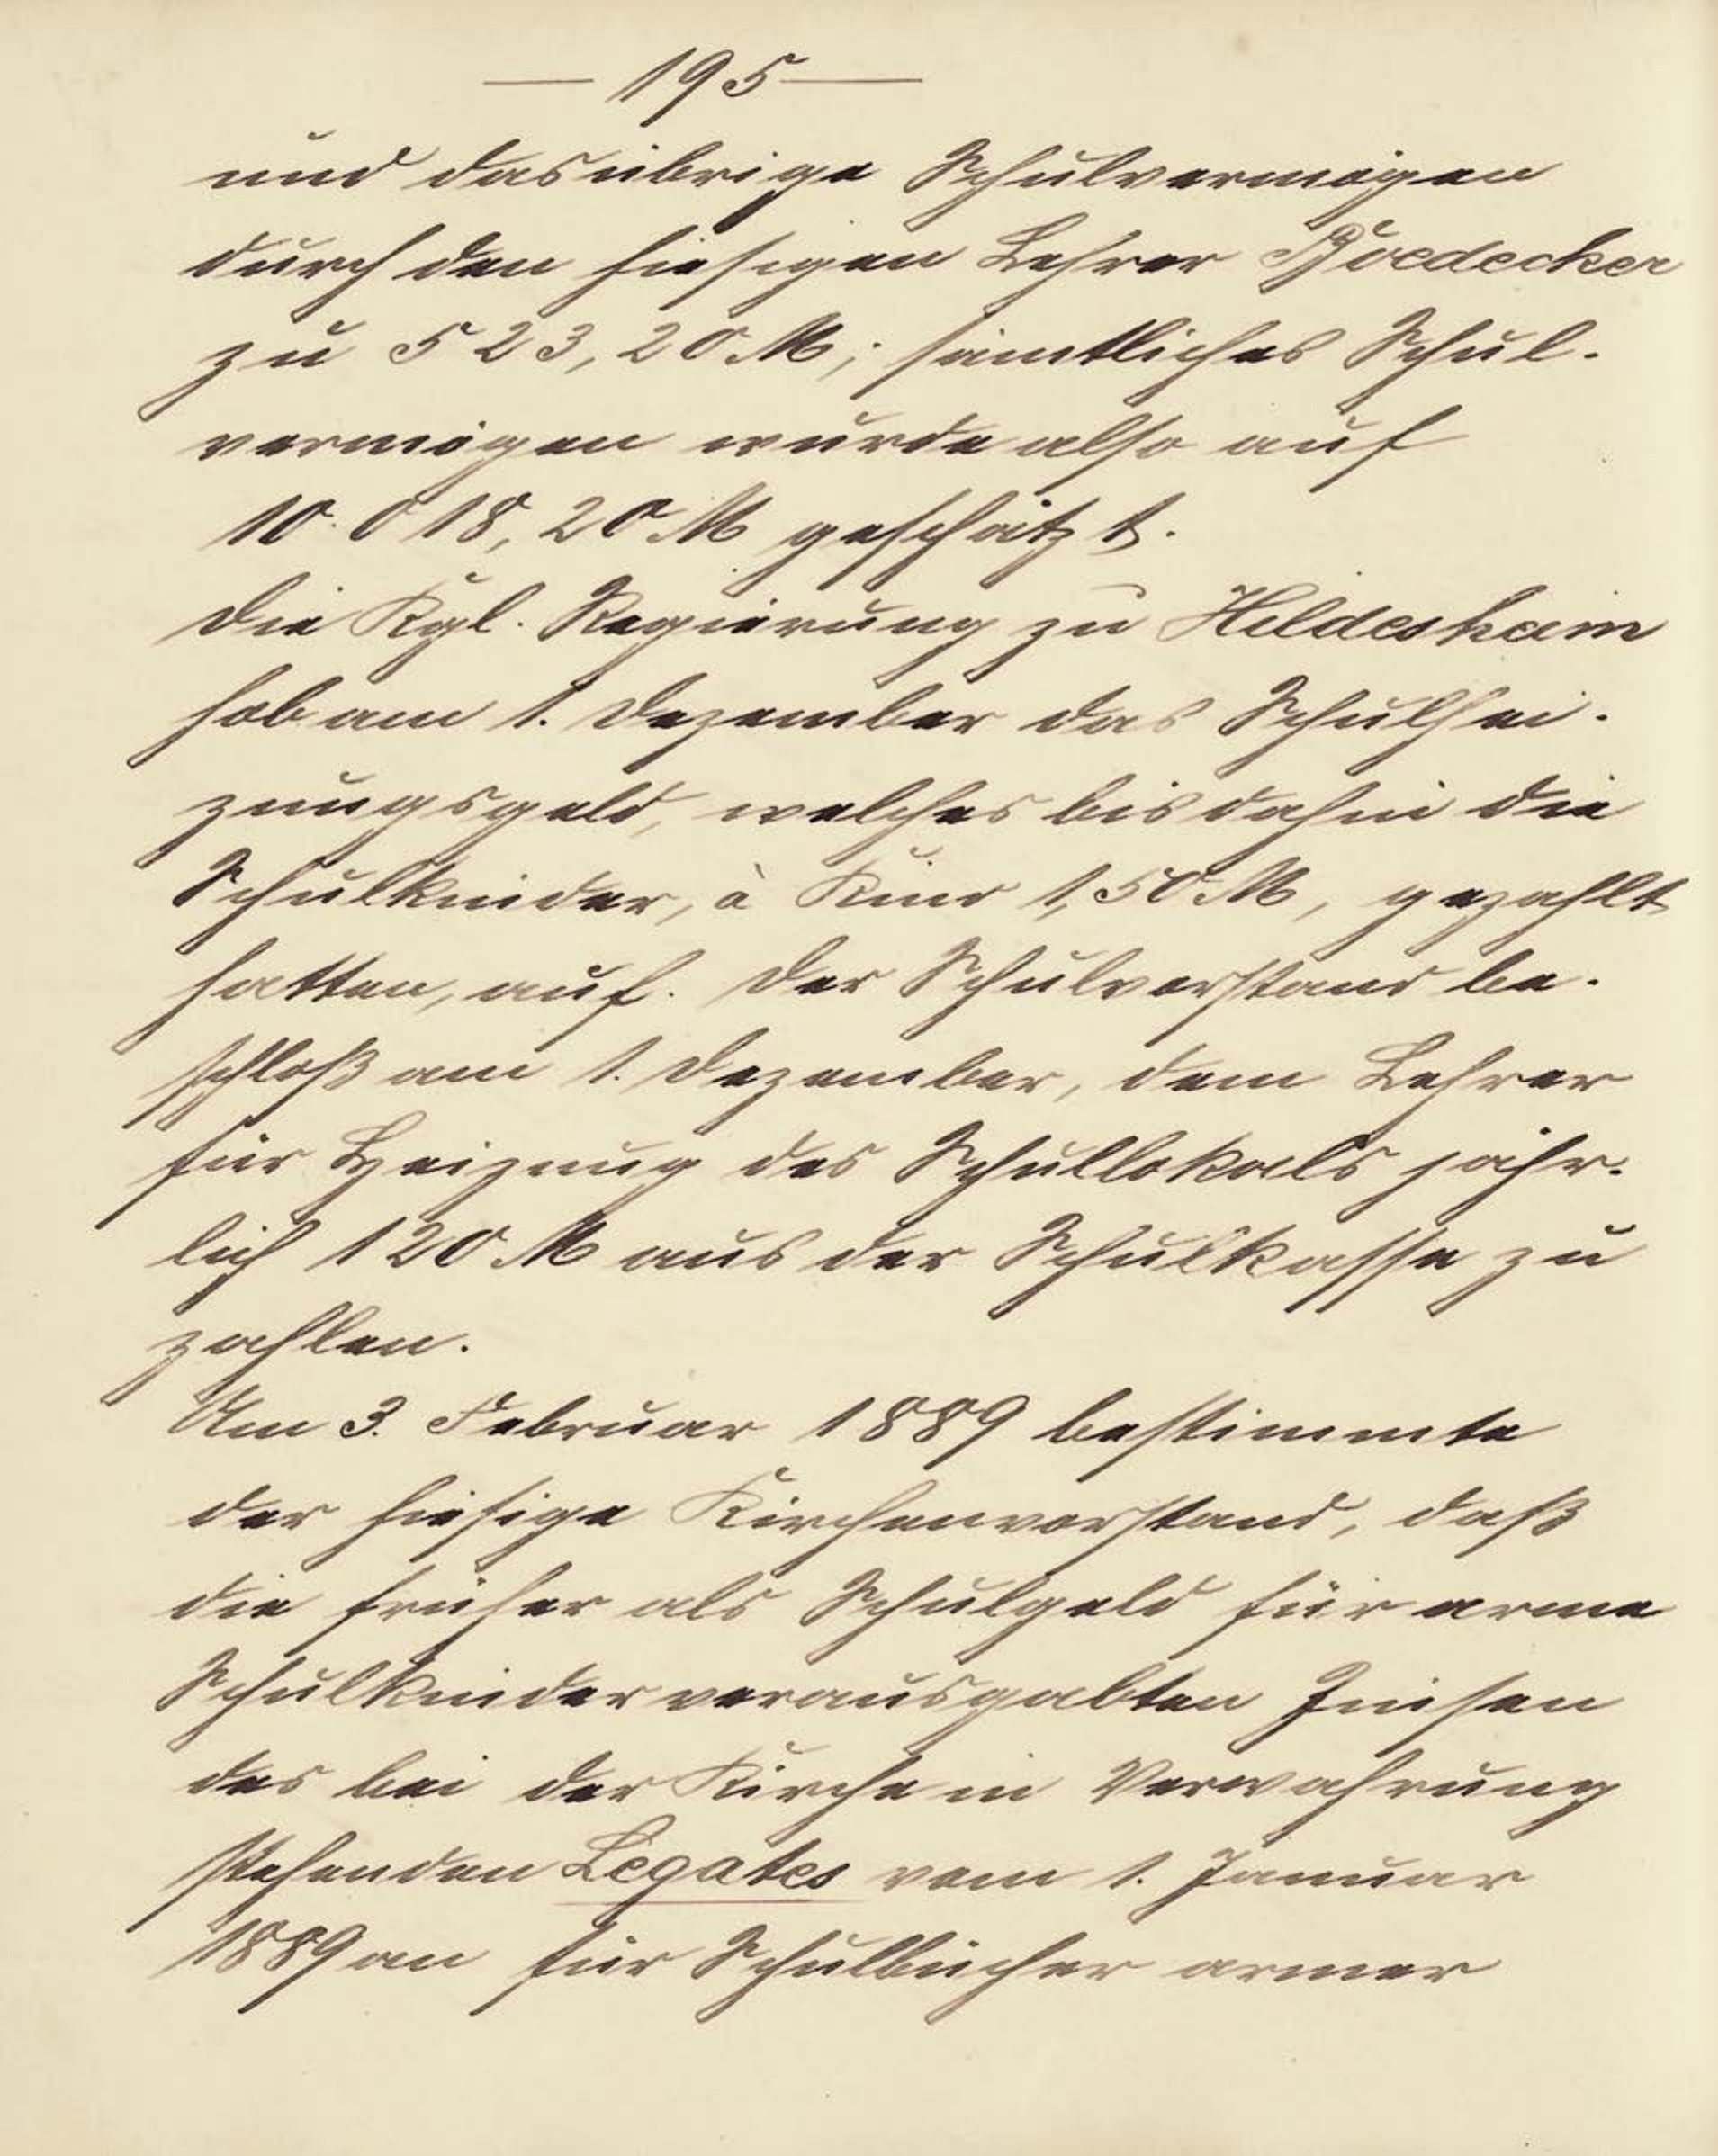 — 195 —
und das übrige Schulvermögen
durch den hiesigen Lehrer Boedecker
zu 523,20 M; sämtliches Schul-
vermögen wurde also auf
10.018,20 M geschätzt.
Die Kgl. Regierung zu Hildesheim
hob am 1. Dezember das Schulhei-
zungsgeld, welches bis dahin die
Schulkinder, à Kind 1,50 M, gezahlt
hatten, auf. Der Schulvorstand be-
schloß am 1. Dezember, dem Lehrer
für Heizung des Schullokals jähr-
lich 120 M aus der Schulkasse zu
zahlen.
Am 3. Februar 1889 bestimmte
der hiesige Kirchenvorstand, daß
die früher als Schulgeld für arme
Schulkinder verausgabten Zinsen
des bei der Kirche in Verwahrung
stehenden Legates vom 1. Januar
1889 an für Schulbücher armer